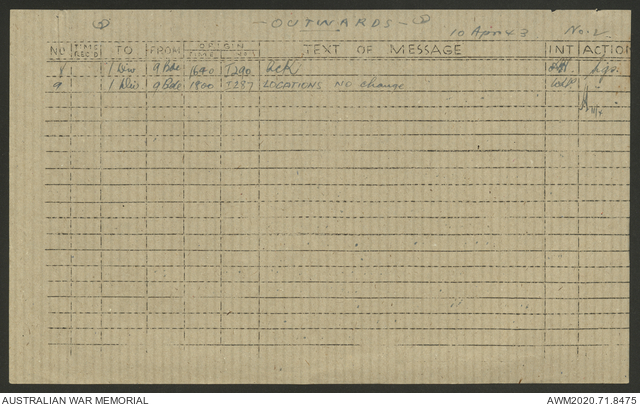 - OUTWARDS -
10 Apr 43 No. 2
NO TIME REC'D TO FROM ORIGIN TIME NOS TEXT OF MESSAGE INT ACTION
8 1 Div 9 Bde 1640 I290
9 1 Div 9 Bde 1800 I287 LOCATIONS NO change
AUSTRALIAN WAR MEMORIAL AWM2020.71.8475